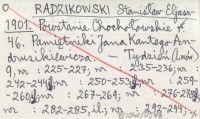 RADZIKOWSKI Stanisław Eljasz
1901. Powstanie Chochołowskie r.
46. Pamiętniki Jana Kantego An-
drusikiewicza. — Tydzień (Lwów)
9, nr : 225-227; nr : 235-236; nr :
242-244; nr : 250-253; nr : 259-
-260; nr : 267-269; nr : 276-278;
nr : 282-285, il.; nr : 292-294;